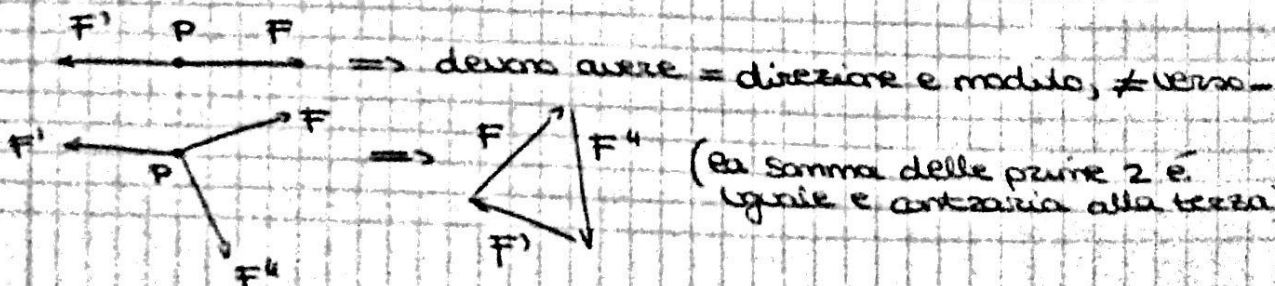 F' P F
=> devono avere = direzione e modulo, ≠ verso-
F' P F F"
=> F F" F'
(la somma delle prime 2 è
uguale e contraria alla terza